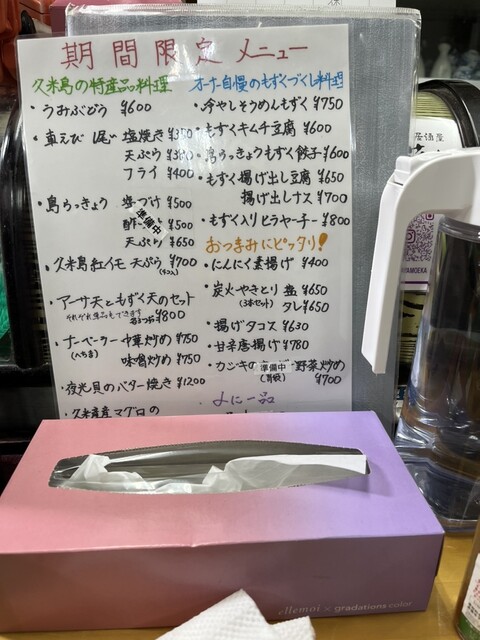 期間限定メニュー
久米島の特産品の料理
・うみぶどう ¥600
・車えび 1尾 塩焼き ¥350
天ぷら ¥380
フライ ¥400
・島らっきょう 塩づけ ¥500
¥500
準備中
天ぷら ¥650
・久米島紅イモ 天ぷら ¥700
(4コ入)
・アーサ天ともずく天のセット
それぞれ単品もできます
¥800
・ナーベーラー 中華炒め ¥750
(へちま)
味噌炒め ¥750
・夜光貝のバター焼き ¥1200
・久米島産マグロの
オーナー自慢のもずくづくし料理
・冷やしそうめんもずく ¥750
・もずくキムチ豆腐 ¥600
・島らっきょうもずく餃子 ¥600
・もずく揚げ出し豆腐 ¥650
揚げ出しナス ¥700
・もずく入りヒラヤーチー ¥800
おつまみにピッタリ!
・にんにく素揚げ ¥400
・炭火やきとり 塩 ¥650
(3本セット) タレ ¥650
・揚げタコス ¥630
・甘辛唐揚げ ¥780
・カジキの
準備中
野菜炒め
¥700
一品
ellemoi × gradations color